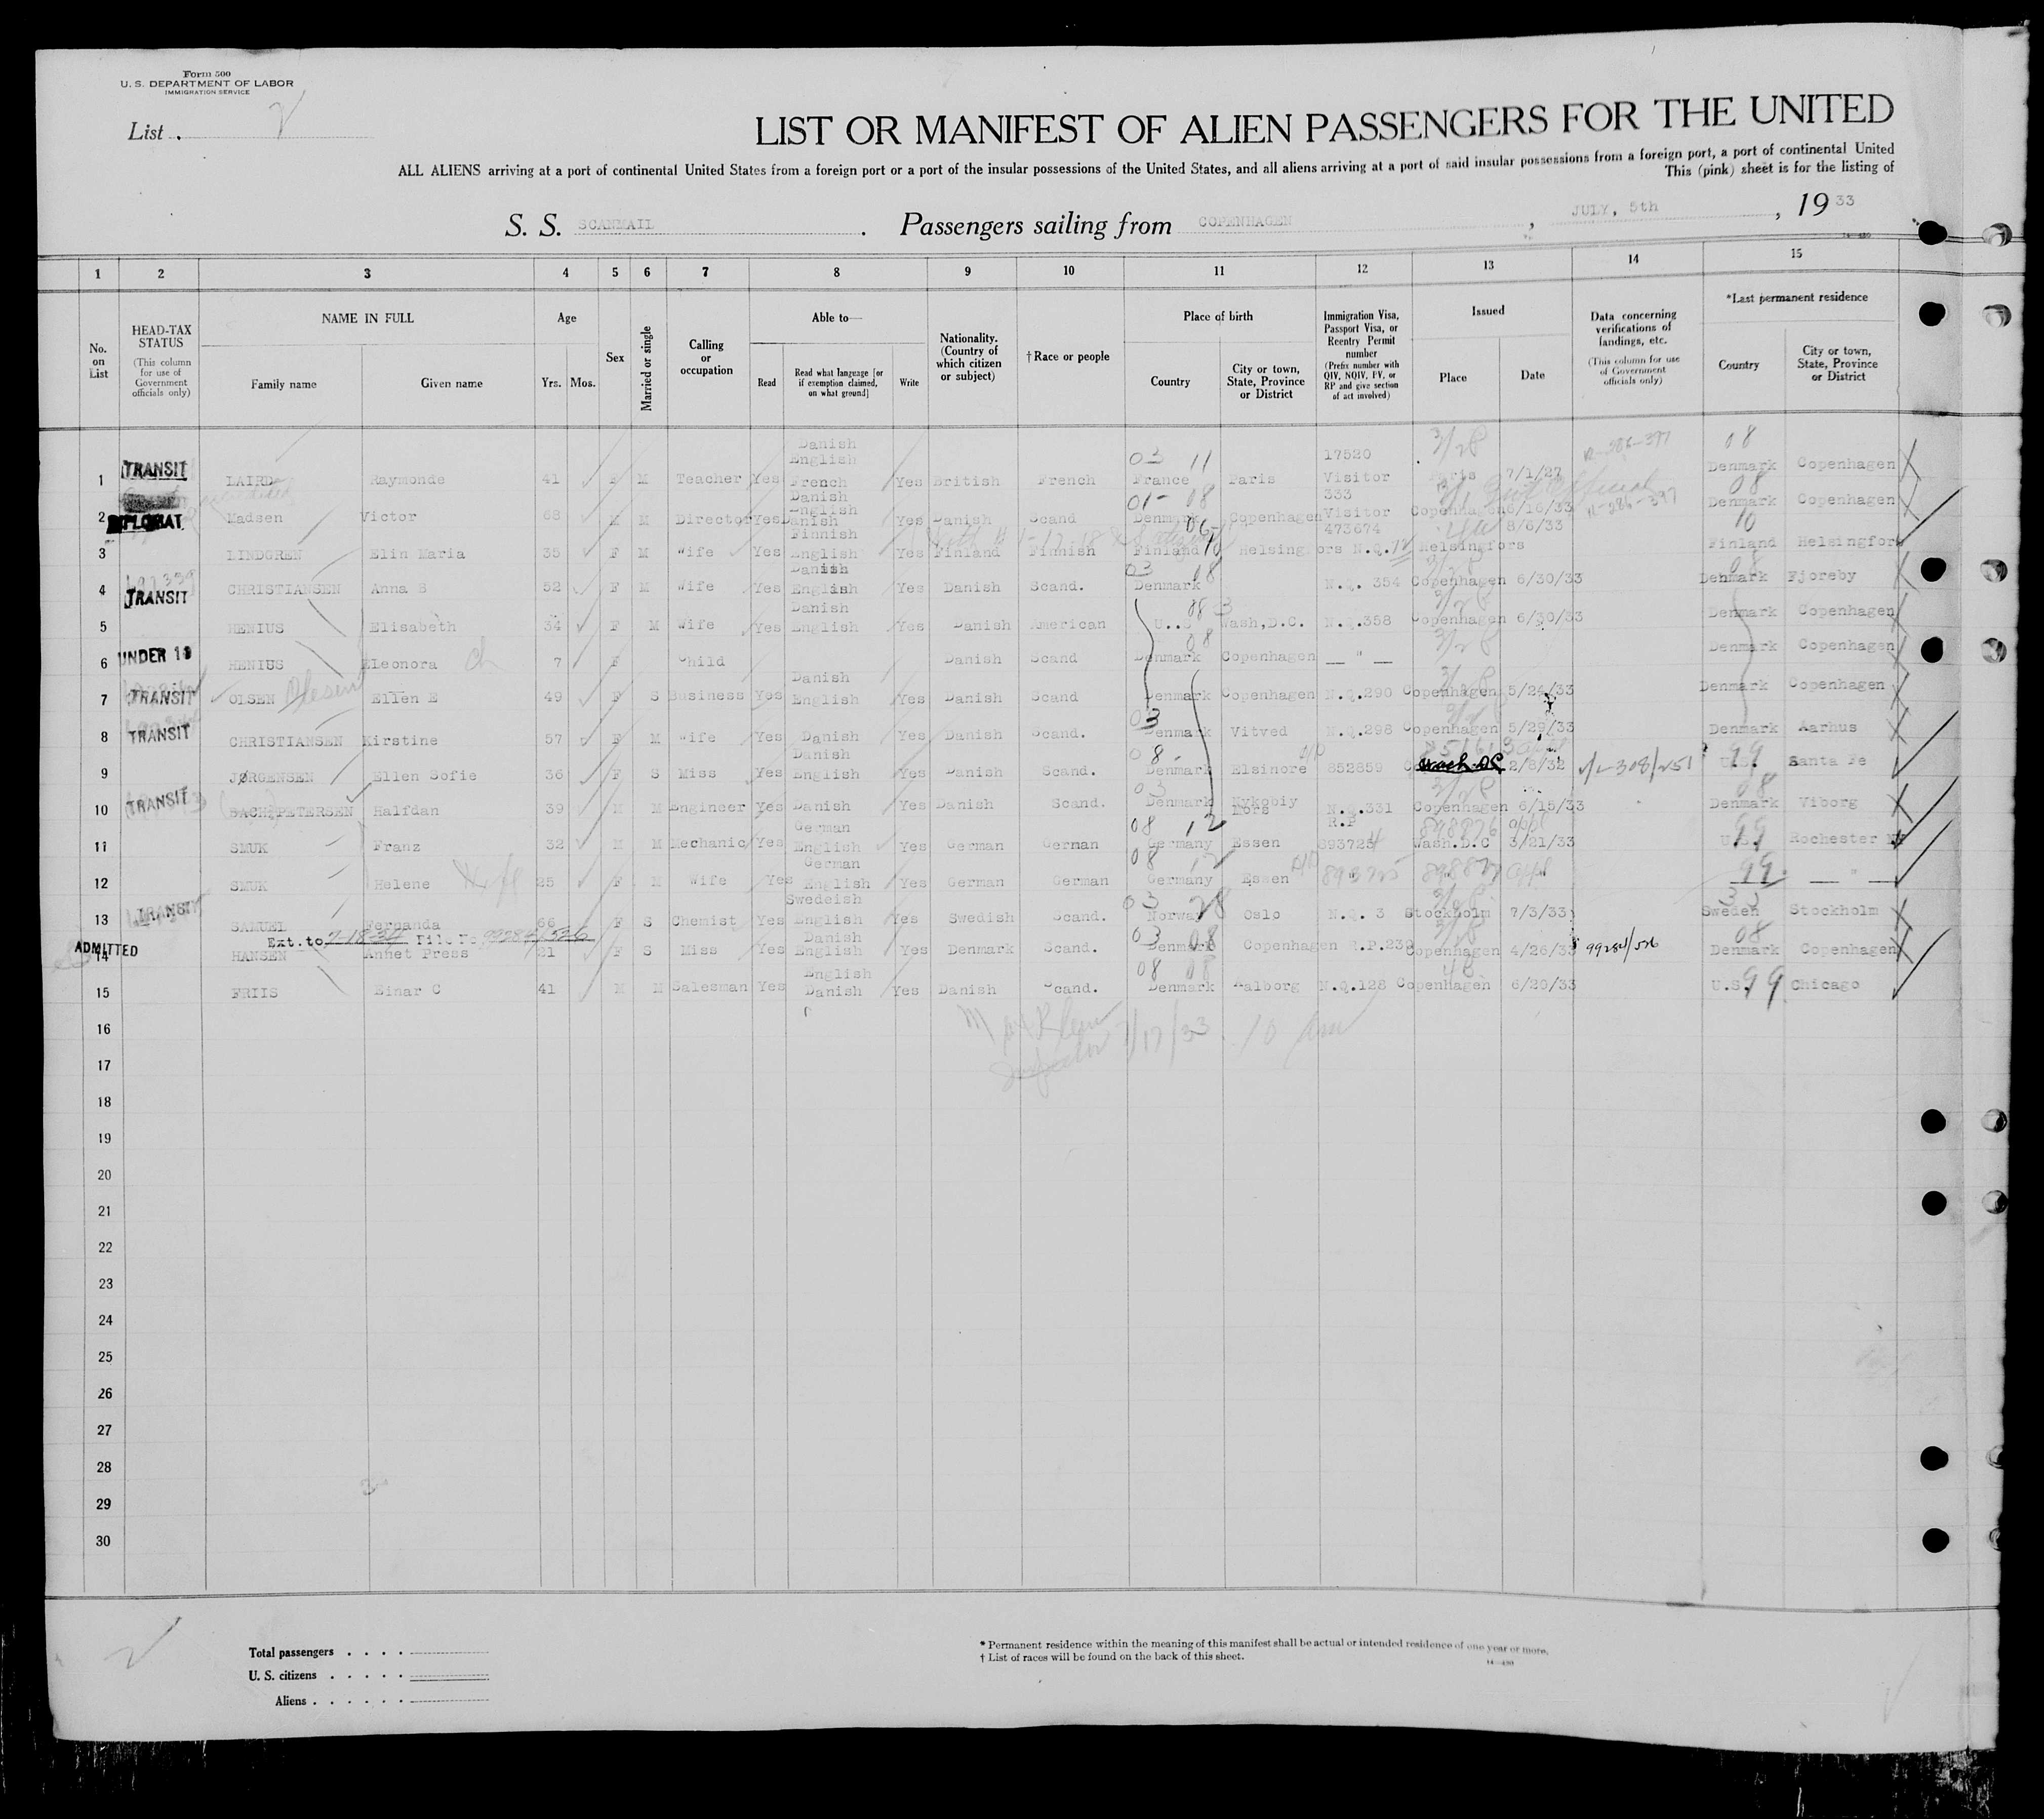 Form 500
U. S. DEPARTMENT OF LABOR
IMMIGRATION SERVICE
List 2
LIST OR MANIFEST OF ALIEN PASSENGERS FOR THE UNITED
ALL ALIENS arriving at a port of continental United States from a foreign port or a port of the insular possessions of the United States, and all aliens arriving at a port of said insular possessions from a foreign port, a port of continental United
This (pink) sheet is for the listing of
S. S. SCANMAIL. Passengers sailing from COPENHAGEN, JULY, 5th, 1933
14—430
1 2 3 4 5 6 7 8 9 10 11 12 13 14 15
No. on List
HEAD-TAX STATUS
(This column for use of Government officials only)
NAME IN FULL
Family name
Given name
Age
Yrs. Mos.
Sex
Married or single
Calling or occupation
Able to—
Read
Read what language [or if exemption claimed, on what ground]
Write
Nationality. (Country of which citizen or subject)
†Race or people
Place of birth
Country
City or town, State, Province or District
Immigration Visa, Passport Visa, or Reentry Permit number
(Prefix number with QIV, NQIV, PV, or RP and give section of act involved)
Issued
Place
Date
Data concerning verifications of landings, etc.
(This column for use of Government officials only)
*Last permanent residence
Country
City or town, State, Province or District
1 TRANSIT LAIRD Raymonde 41 F M Teacher Yes Danish English French Yes British French 03 11 France Paris 17520 Visitor 3/28 Paris 7/1/27 08 Denmark Copenhagen
2 DIPLOMAT Madsen Victor 68 M M Director Yes Danish English Danish Yes Danish Scand 01- 08 Denmark Copenhagen 333 Visitor Copenhagen 6/10/33 08 Denmark Copenhagen
3 LINDGREN Elin Maria 35 F M Wife Yes Finnish English Yes Finland Finnish Finland Helsingfors 473674 N.Q.72 Helsingfors 8/6/33 10 Finland Helsingfors
4 TRANSIT CHRISTIANSEN Anna S 52 F M Wife Yes Danish English Yes Danish Scand. 03 08 Denmark N.Q. 354 Copenhagen 6/30/33 08 Denmark Fjoreby
5 HENIUS Elisabeth 34 F M Wife Yes Danish English Yes Danish American U.S Wash,D.C. N.Q.358 Copenhagen 6/30/33 Denmark Copenhagen
6 UNDER 16 HENIUS Eleonora Ch 7 F Child Danish Scand 08 Denmark Copenhagen — " — 3/28 Denmark Copenhagen
7 TRANSIT OLSEN Olesen Ellen E 49 F S Business Yes Danish English Yes Danish Scand Denmark Copenhagen N.Q.290 Copenhagen 5/24/33 Denmark Copenhagen
8 TRANSIT CHRISTIANSEN Kirstine 57 F M Wife Yes Danish Yes Danish Scand. 03 Denmark Vitved N.Q.298 Copenhagen 5/29/33 Denmark Aarhus
9 JØRGENSEN Ellen Sofie 36 F S Miss Yes Danish English Yes Danish Scand. 08- Denmark Elsinore 852859 Wash. DC 2/8/32 99 U.S. Santa Fe
10 TRANSIT BACH-PETERSEN Halfdan 39 M M Engineer Yes Danish Yes Danish Scand. 03 Denmark Nykobiy Mors N.Q.331 3/28 Copenhagen 6/15/33 08 Denmark Viborg
11 SMUK Franz 32 M M Mechanic Yes German English Yes German German 08 12 Germany Essen R.P 893724 898876 appl Wash.D.C 3/21/33 99 U.S. Rochester
12 SMUK Helene Wife 25 F M Wife Yes German English Yes German German 08 12 Germany Essen 893725 898877 appl 99 — " —
13 TRANSIT SAMUEL Fernanda 66 F S Chemist Yes Swedeish English Yes Swedish Scand. 03 28 Norway Oslo N.Q. 3 Stockholm 7/3/33 33 Sweden Stockholm
Ext. to 7-18-34 File No 99284/526
14 ADMITTED HANSEN Annet Press 21 F S Miss Yes Danish English Yes Denmark Scand. 03 08 Denmark Copenhagen R.P.239 Copenhagen 4/26/33 99284/526 08 Denmark Copenhagen
15 FRIIS Einar C 41 M M Salesman Yes English Danish Yes Danish Scand. 08 08 Denmark Aalborg N.Q.128 Copenhagen 6/20/33 U.S. 99 Chicago
16 Max Klein 7/17/33 10 am
17 Inspector
18
19
20
21
22
23
24
25
26
27
28
29
30
Total passengers
U. S. citizens
Aliens
* Permanent residence within the meaning of this manifest shall be actual or intended residence of one year or more.
† List of races will be found on the back of this sheet.
14—430